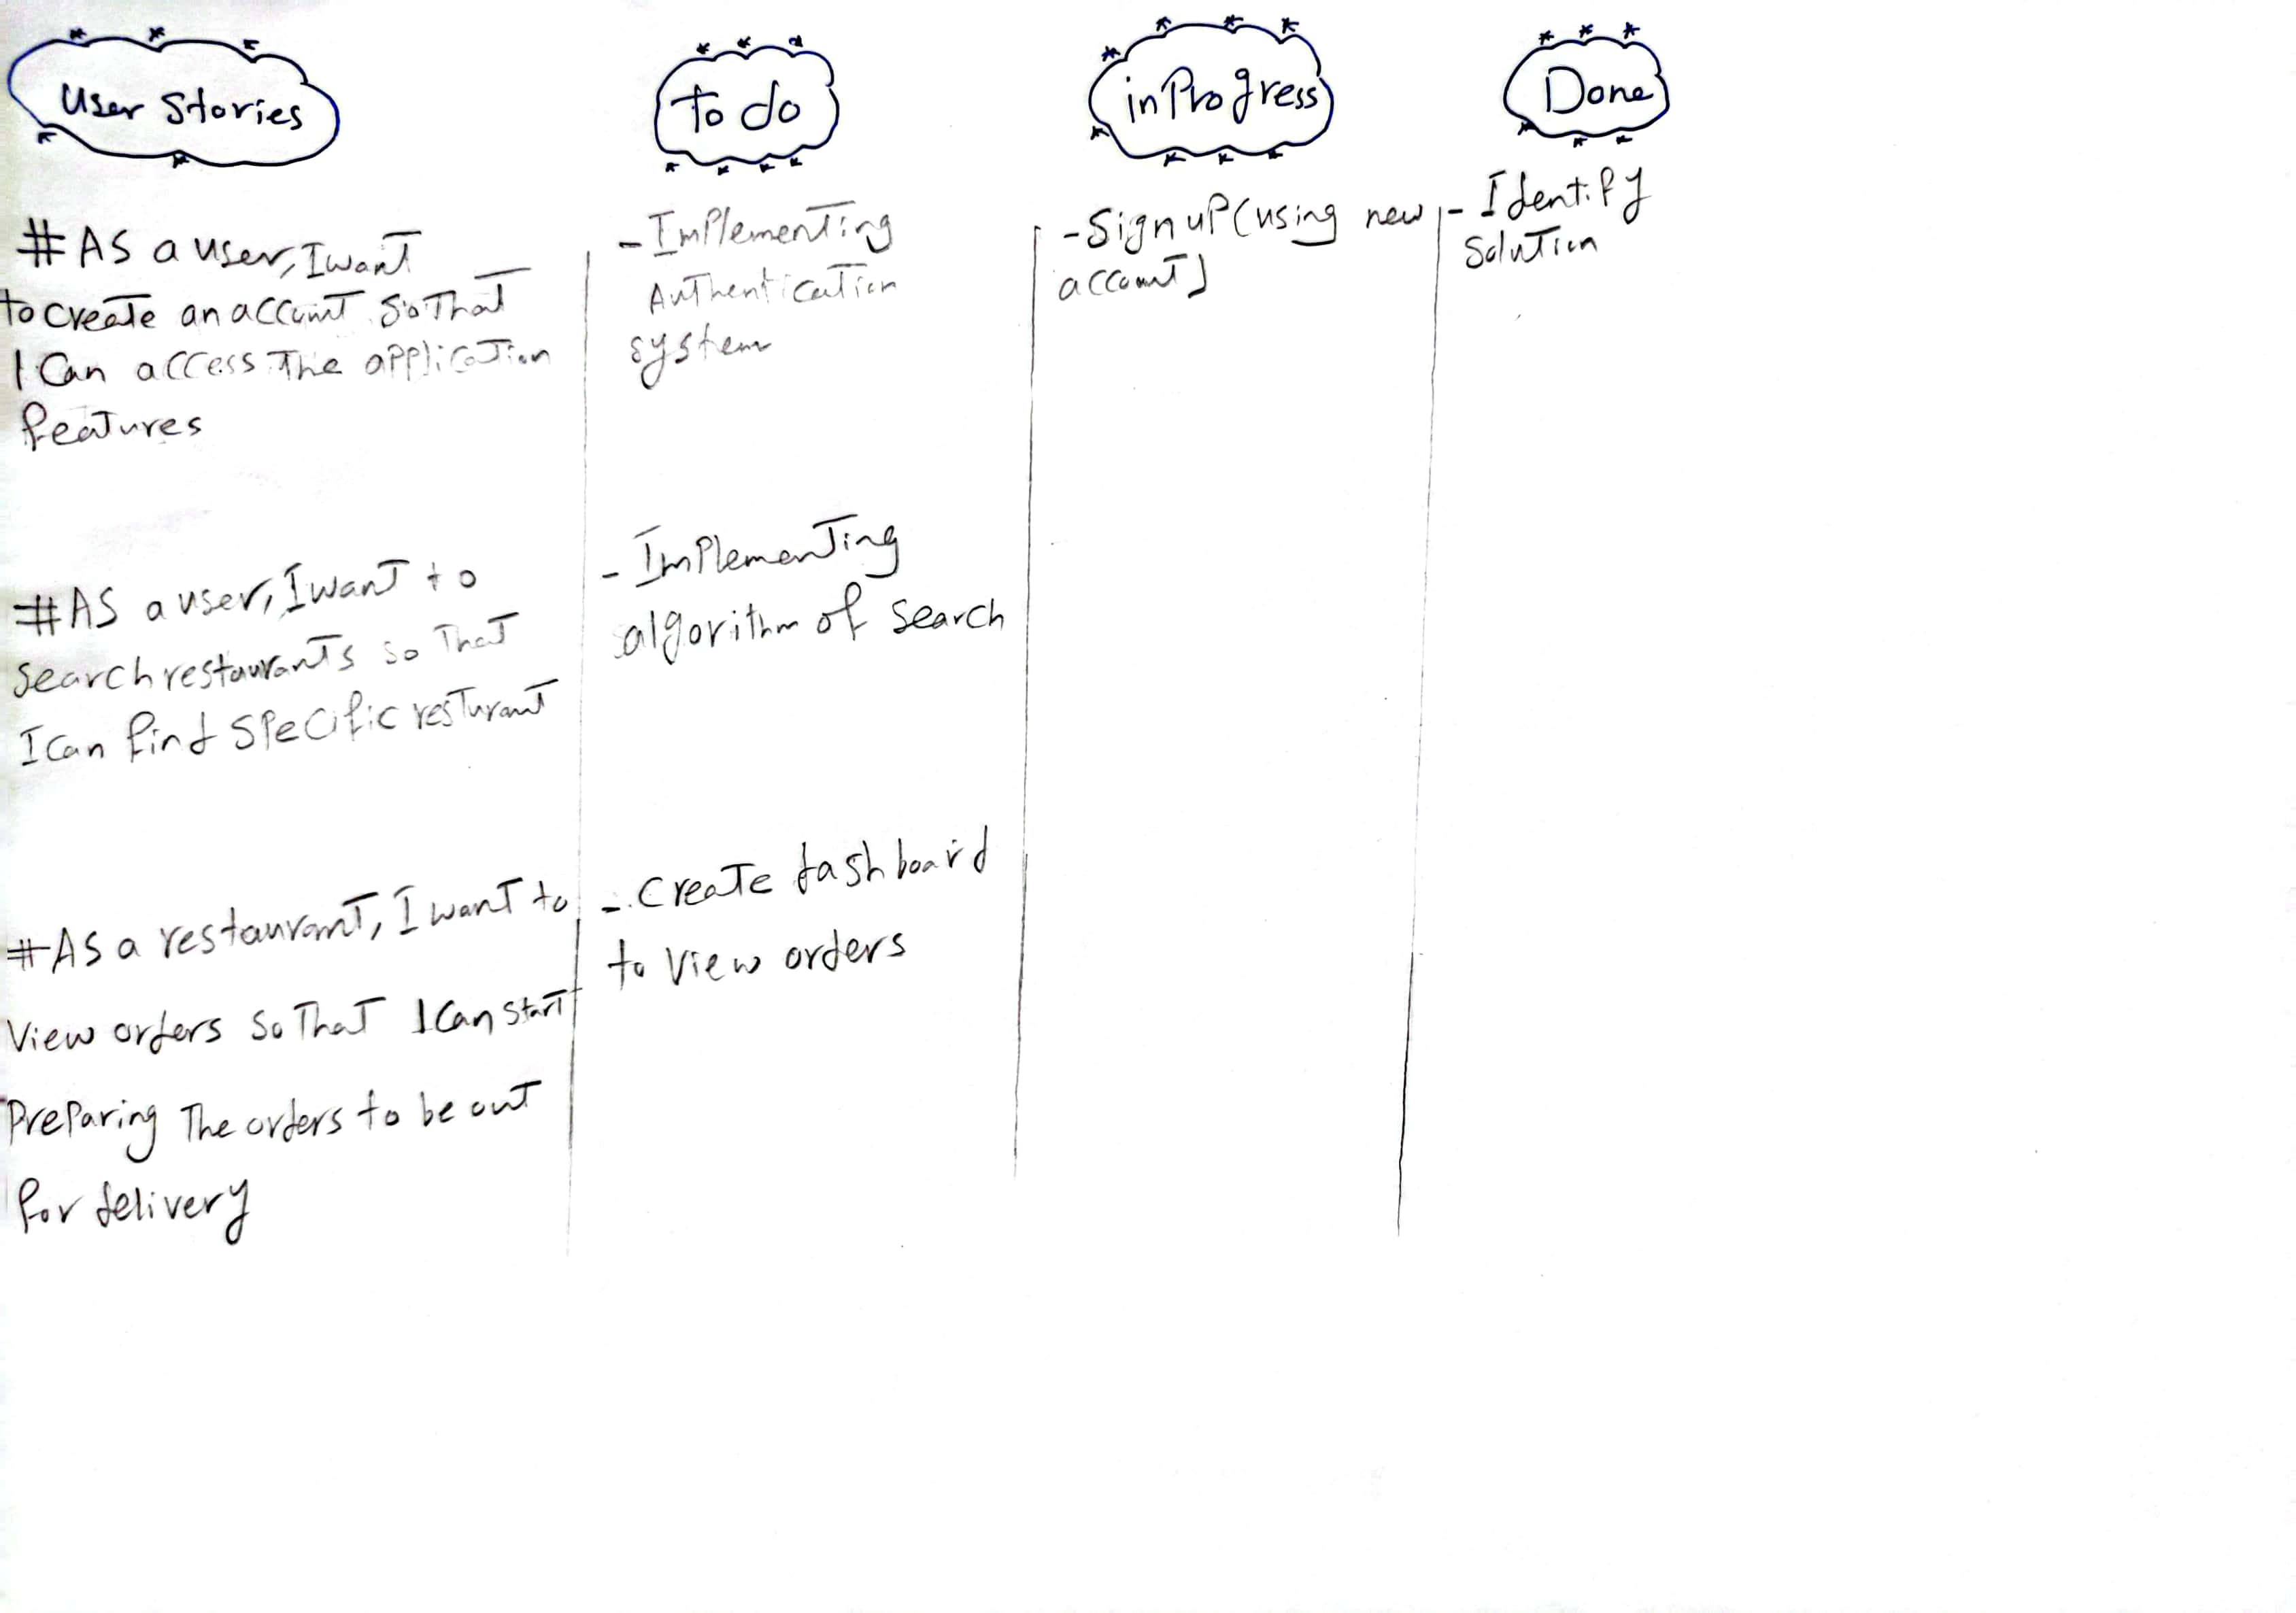 User Stories
to do
in Progress
Done
#AS a user, I want
to create an account so that
I can access the application
features
- Implementing
Authentication
system
- Sign up (using new
account)
- Identify
solution
#AS a user, I want to
search restaurants so that
I can find specific resturant
- Implementing
algorithm of search
#As a restaurant, I want to
view orders so that I can start
preparing the orders to be out
for delivery
- Create dashboard
to view orders